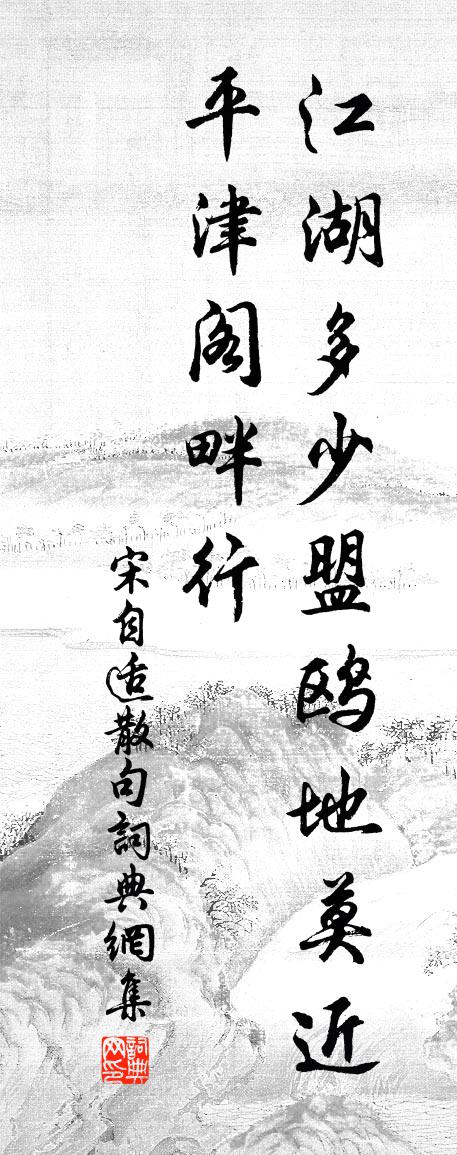 江湖多少盟鸥地莫近
平津阁畔行
宋自适散句詞典網集
詞典网印